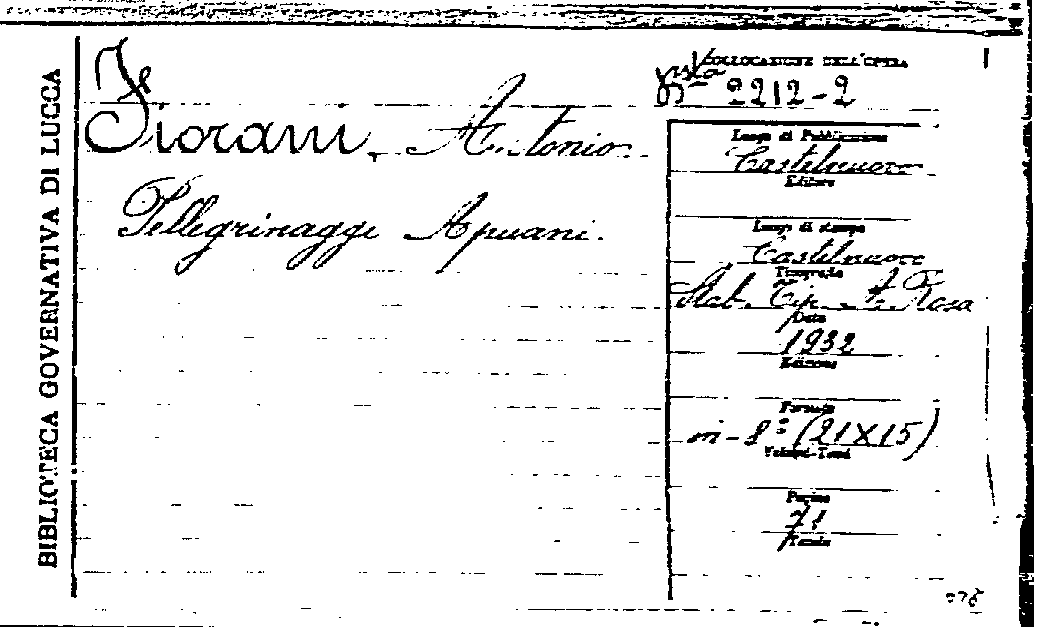 BIBLIOTECA GOVERNATIVA DI LUCCA
Fiorani, Antonio
Pellegrinaggi Apuani.
COLLOCAZIONE DELL'OPERA
Busta 2212-2
Luogo di Pubblicazione
Castelnuovo
Editore
Luogo di stampa
Castelnuovo
Tipografia
Stab. Tip. A. Rosa
Data
1932
Edizione
Formato
in-8° (21X15)
Volumi-Tomi
Pagine
71
Tavole